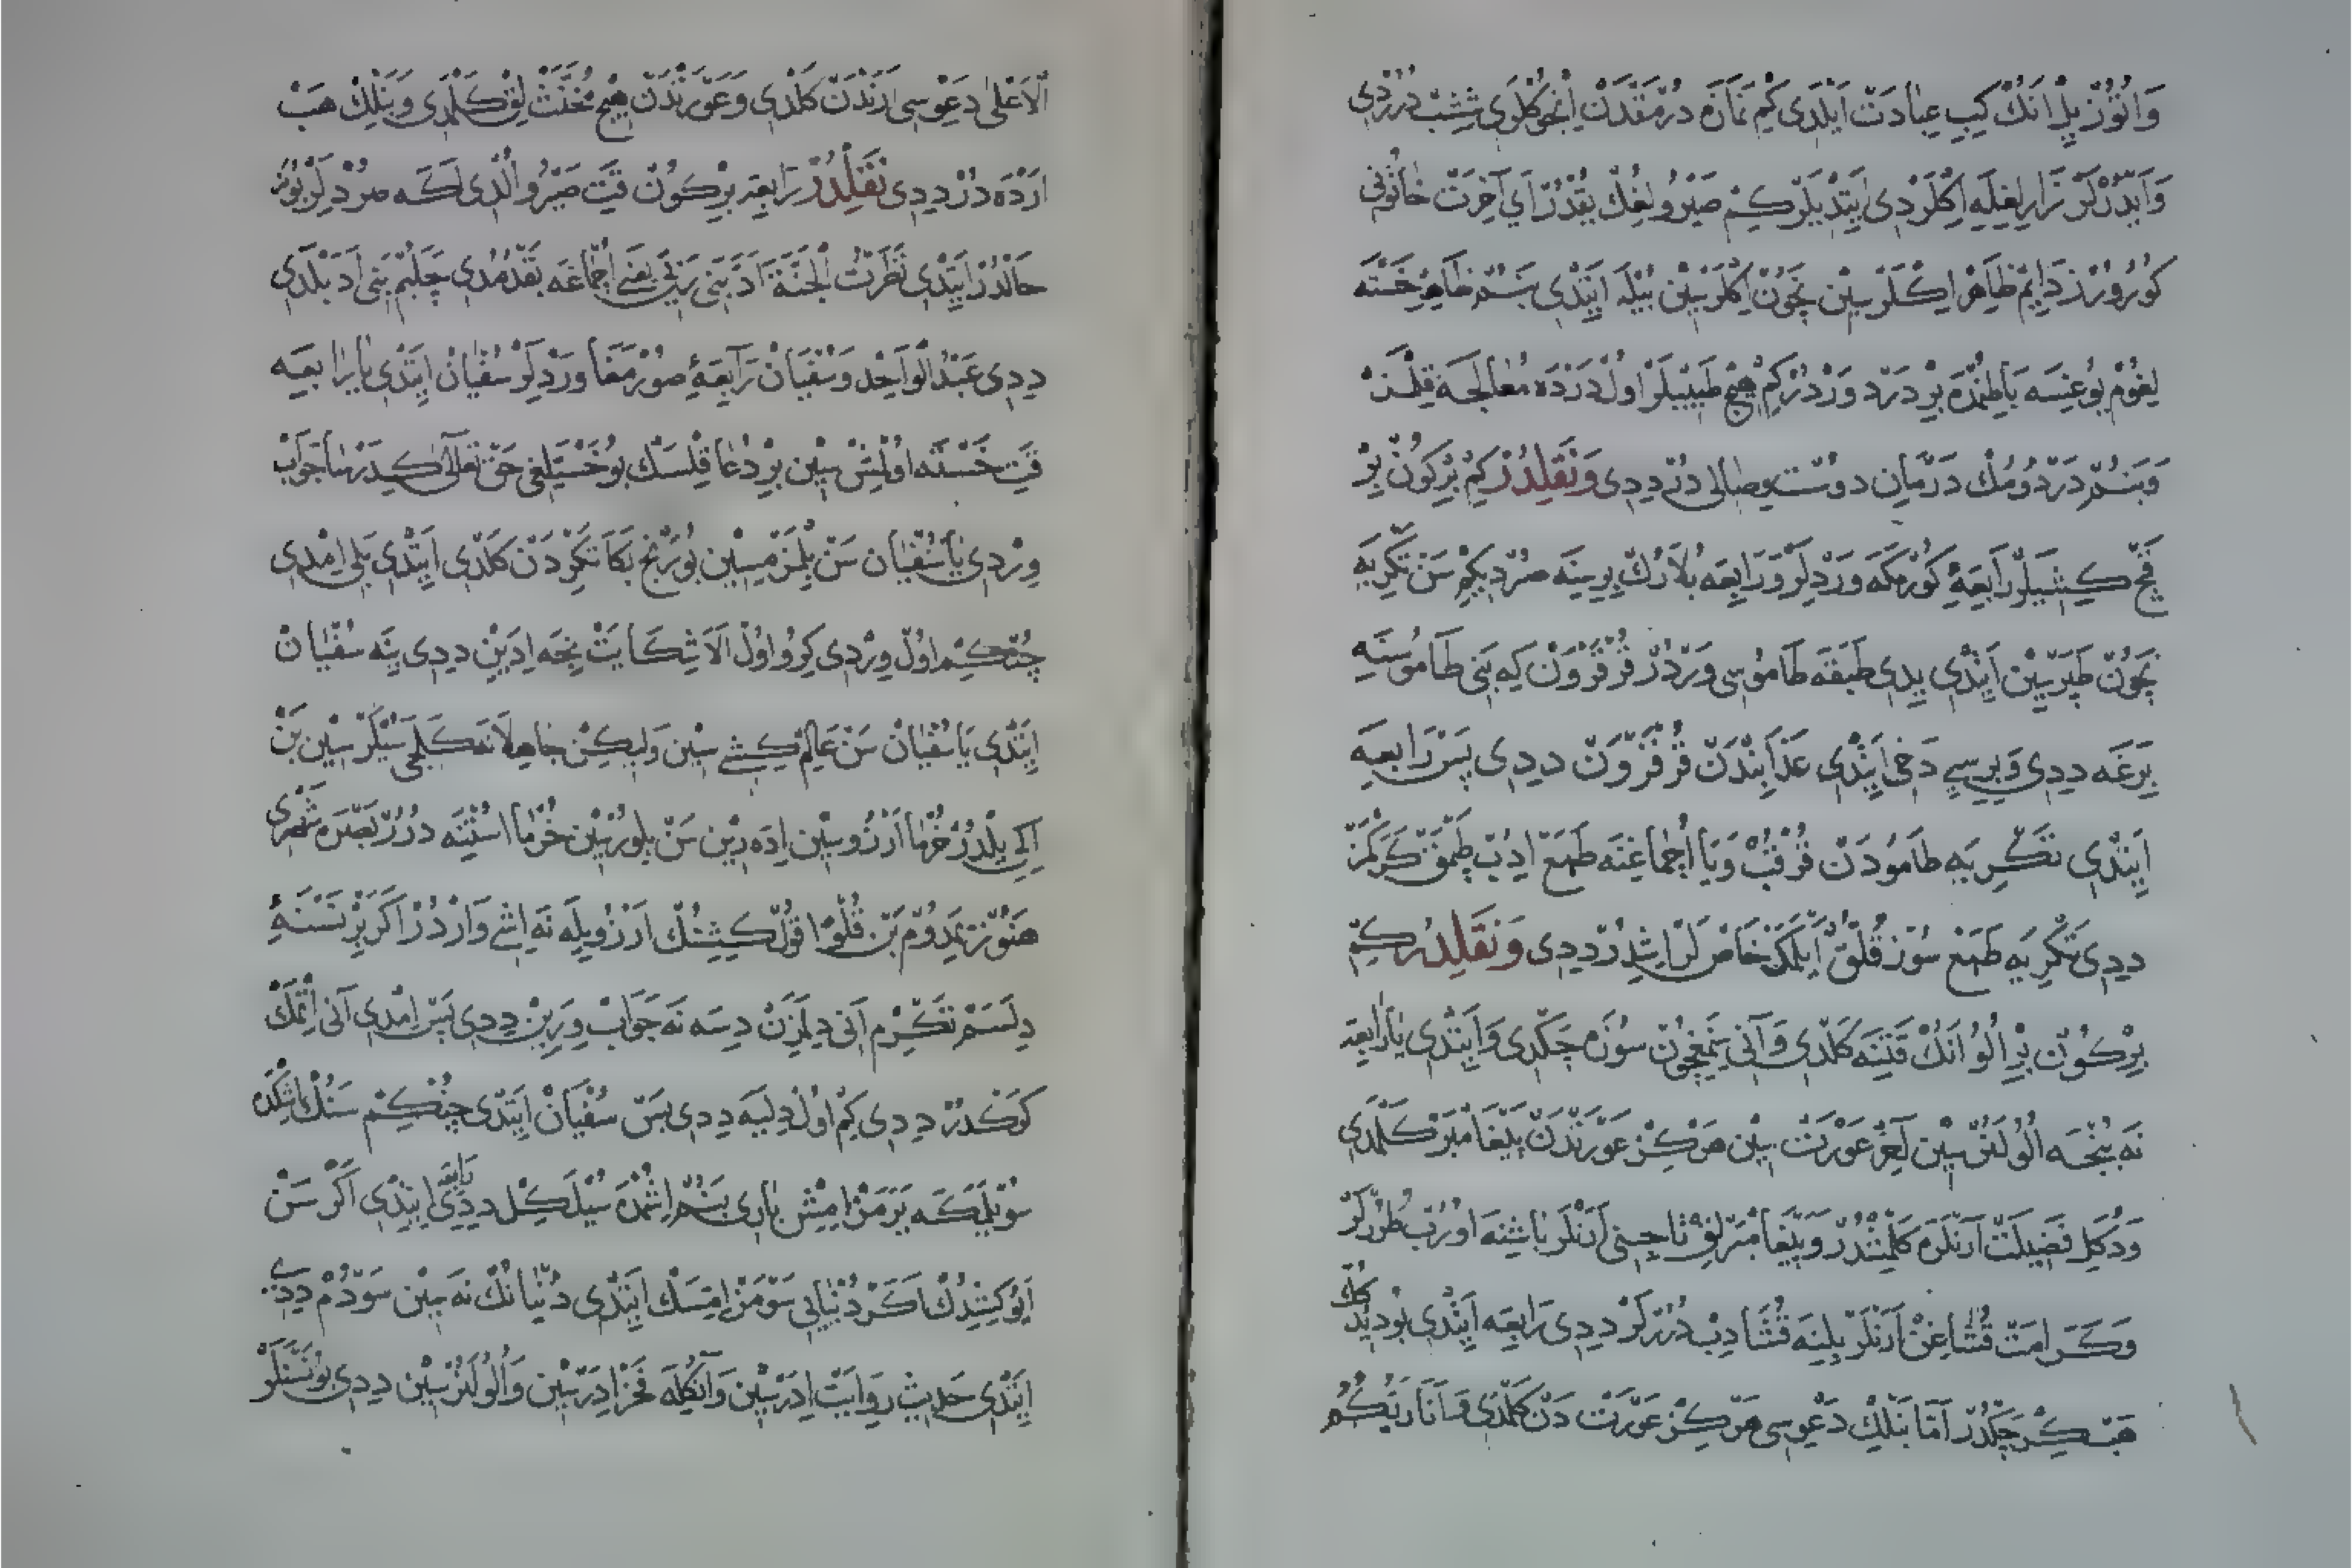 وَاُتُوزْ يِلْ اَنُكْ كِبِ عِبَادَتْ اَيْلَدِى كِمْ نَمَازَه دُرْمَقْدَنْ اِنْجُكْلَرِى شِشِبْ دُرُرْدِى
وَاَيْدُرْلَرْ زَارِلِغِلَه اِكْلَرْدِى اَيِتْدِيلَرْ كِمْ صَيْرُولِغُكْ يُقْدُرْ اَيْ آخِرَتْ خَاتُونِى
كُورُورُزْ دَايِمْ ظَاهِرْ اِكْلَرْسِينْ نِچُونْ اِكْلَرْسِينْ بُيْلَه اَيِتْدِى بَنُمْ ظَاهِرْ خَسْتَه
لِغُومْ يُوغِسَه بَاطِنُمْدَه بِرْ دَرْد وَرْدُرْ كِمْ هِيچْ طَبِيبْلَرْ اولْ دَرْدَه مُعَالَجَه قِلْمَزْ
وَبَنُمْ دَرْدُومُكْ دَرْمَانِ دوُسْت وِصَالِى دُرْ دِدِى وَنَقِلْدُرْ كِمْ بِرْ كُونْ بِرْ
قَچْ كِشِيلَرْ رَابِعَهٔ كُورْمَكَه وَرْدِلَرْ وَرَابِعَه بُلَارُكْ بِرِسِينَه صُرْدِ كِمْ سَنْ تَكْرِيَه
نِچُونْ طَپَرْسِينْ اَيِتْدِى يِدِى طَبَقَه طَامُوسِى وَرْدُرْ قُرْقَرْوَنْ كِه بَنِى طَامُوسُنَه
بِرَغَه دِدِى وَبِرِسِى دَخِى اَيِتْدِى عَذَابِنْدَنْ قُرْقَرْوَنْ دِدِى پَسْ رَابِعَه
اَيِتْدِى تَكْرِيَه طَامُودَنْ قُرْقُبْ وَيَا اُچْمَاغِنَه طَمَعْ اِدُبْ طَپْمَقْ كَرَكْمَزْ
دِدِى تَكْرِيَه طَمَعْ سُوزْ قُلْقْ اَيْلَمَكْ خَاصْلَرْ اِشِدُرْ دِدِى وَنَقِلْدُرْ كِمْ
بِرْ كُونْ بِرْ اُلُو اَنُكْ قَتِنَه كَلْدِى وَآنِى صِنَمَغِچُونْ سُوزَه چَكْدِى وَاَيِتْدِى يَا رَابِعَه
نَه بُنْچَه اُلُولَنُرْسِينْ آخِرْ عَوْرَتْ سِينْ هَرْكِزْ عَوْرَتْدَنْ پَيْغَامْبَرْ كَلْمَدِى
وَدُكَلِ فَضِيلَتْ اَرَنْلَرَه كَلْمِشْدُرْ وَپَيْغَامْبَرْلِقْ تَاجِنِى اَرَنْلَرْ بَاشِنَه اوُرُبْ طُرُرْلَرْ
وَكَرَامَتْ قُشَاغِنْ اَرَنْلَرْ بِلِينَه قُشَادِبْ دُرُرْلَرْ دِدِى رَابِعَه اَيِتْدِى بُو دِيدُكُكْ
هَبْ كِرْچَكْدُرْ اَمَّا بَنْلِكْ دَعْوِسِى هَرْكِزْ عَوْرَتْ دَنْ كَلْمَدِى وَاَنَا رَبُّكُمُ
اْلاَعْلَى دَعْوِسِى اَرَنْدَنْ كَلْدِى وَعَوْرَتْدَنْ هِيچْ مُخَنَّثْ لِقْ كَلْمَدِى وَبَنْلِكْ هَبْ
اَرْدَه دُرْ دِدِى نَقِلْدُرْ رَابِعَه بِرْ كُونْ قَتِ صَيْرُو اُلْدِى اَكَه صُرْدِلَرْ بُو نَه
حَالْدُرْ اَيِتْدِى نَظَرْتُ اْلْجَنَّةَ اَدَّبَنِى رَبِّى يَعْنِى اُچْمَاغَه بَقْدُمُدِى چَلَبُمْ بَنِى اَدَبْلَدِى
دِدِى عَبْدُ الْوَاحِد وَسُفْيَانْ رَابِعَهٔ صُورْمَغَا وَرْدِلَرْ سُفْيَانْ اَيِتْدِى يَا رَابِعَه
قَتِ خَسْتَه اُولْمِشْ سِينْ بِرْ دُعَا قِلْسَكْ بُو خَسْتَلِغِى حَقْ تَعَالَى كِدَرَه يَا جَوَابْ
وِرْدِى يَا سُفْيَانْ سَنْ بِلْمَزْمِسِينْ بُو رَنْجْ بَكَا تَكْرِدَنْ كَلْدِى اَيِتْدِى بَلِى اِمْدِى
چُنْكِمْ اوُلْ وِرْدِى كِرُو اوُلْ اَلَا شِكَايَتْ نِجَه اِدَيِنْ دِدِى يِنَه سُفْيَانْ
اَيِتْدِى يَا سُفْيَانْ سَنْ عَالِمْ كِشِى سِينْ وَلِيكِنْ جَاهِلَانَه كَلَچِى سُيْلَرْسِينْ بَنْ
اِكِى يِلْدُرْ خُرْمَا اَرْزُوسِينْ اِدَه دِينْ سَنْ بِلُورْسِينْ خُرْمَا اسْتِنَه دُرُرْ بَصْرَه شَهْرِى
هَنُوزْ يَمَدُومْ بَنْ قُلْوَنْ قُولْ كِشِنُكْ اَرْزُويِلَه نَه اِشِى وَارْدُرْ اَكَرْ بِرْ نَسْنَهٔ
دِلَسَمْ تَكْرِمْ اَنِى دِلَمَزَنْ دِسَه نَه جَوَابْ وِرَيِنْ دِدِى پَسْ اِمْدِى آنِى اِتْمَكْ
كَرَكْدُرْ دِدِى كِمْ اوُلْ دِلَيَه دِدِى پَسْ سُفْيَانْ اَيِتْدِى چُنْكِمْ سَنُكْ اِشُكْدَه
سُويْلَمَكَه يَرَمَزْ اِمِشْ بَارِى بَنُمْ اِشُمْدَه سُيْلَكِلْ دِدِى رَابِعَه اَيِتْدِى اَكَرْ سَنْ
اَيُو كِشِدُكْ اَكَرْ دُنْيَايِى سَوْمَزْ اِمِسَكْ اَيِتْدِى دُنْيَانُكْ نَه سِينْ سَوْدُمْ دِدِى
اَيِتْدِى حَدِيثْ رِوَايَتْ اِدَرْسِينْ وَآنُكِلَه فَخْرْ اِدَرْسِينْ وَاُلُولَنُرْسِينْ دِدِى بُو نَسْنَلَرْ